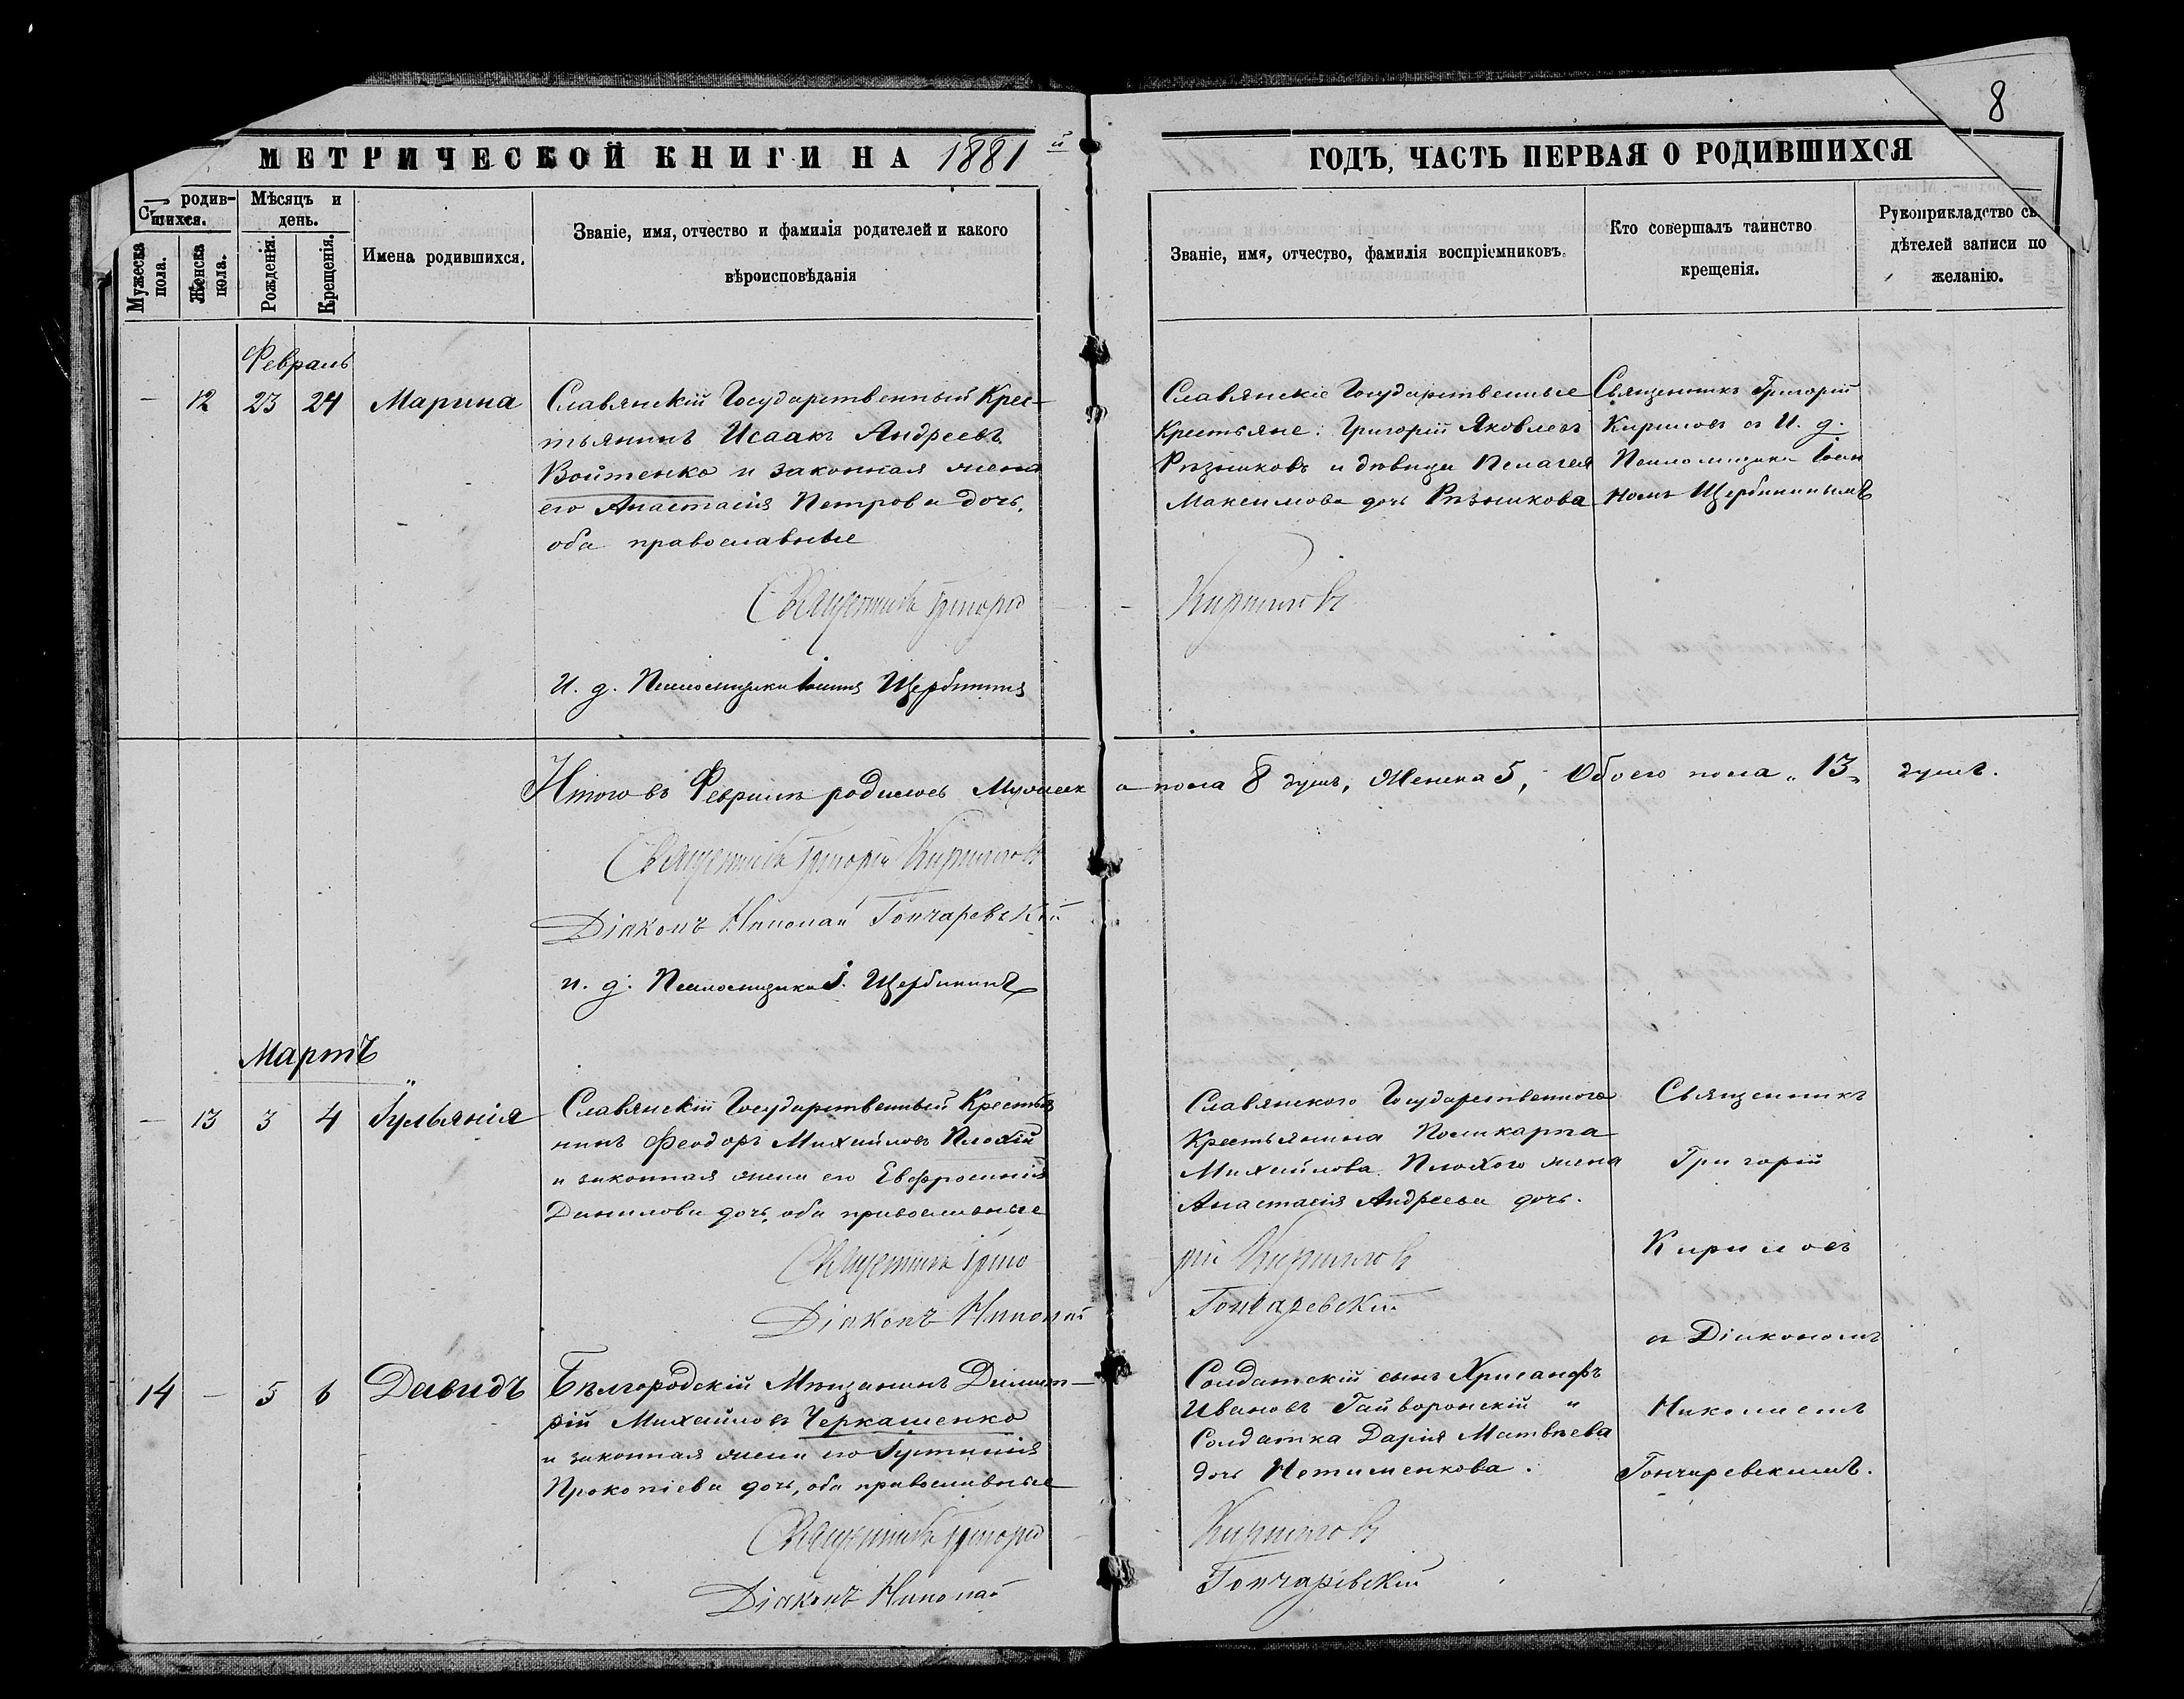 8
МЕТРИЧЕСКОЙ КНИГИ НА 1881 й
ГОДЪ, ЧАСТЬ ПЕРВАЯ О РОДИВШИХСЯ
родив-
шихся.
Мужеска пола.
Женска пола.
Мѣсяцъ и день.
Рожденія.
Крещенія.
Имена родившихся.
Званіе, имя, отчество и фамилія родителей и какого
вѣроисповѣданія
Званіе, имя, отчество, фамилія воспріемниковъ.
Кто совершалъ таинство
крещенія.
Рукоприкладство сви
дѣтелей записи по
желанію.
Февраль
— 12 23 24 Марина
Славянскій Государственный Крес-
тьянинъ Исаакъ Андреевъ
Войтенко и законная жена
его Анастасія Петрова дочь,
оба православные
Священникъ Григорій
И. д. Псаломщика Іоаннъ Щербининъ
Славянскіе Государственные
Крестьяне: Григорій Яковлевъ
Рѣзниковъ и дѣвица Пелагея
Максимова дочь Рѣзникова
Кириловъ
Священникъ Григорій
Кириловъ съ И. д.
Псаломщика Іоан
номъ Щербининымъ
Итого въ Февралѣ родилось Мужеск а пола 8 душъ, Женска 5, Обоего пола „13„ душъ.
Священникъ Григорій Кириловъ
Діаконъ Николай Гончаревскій
и. д. Псаломщика І. Щербининъ
Мартъ
— 13 3 4 Іульянія
Славянскій Государственный Крестья
нинъ Феодоръ Михайловъ Плохій
и законная жена его Евфросинія
Данилова дочь, оба православные
Священникъ Григо
Діаконъ Николай
Славянского Государственного
Крестьянина Поликарпа
Михайлова Плохого жена
Анастасія Андреева дочь.
рій Кириловъ
Гончаревскій
Священникъ
Григорій
Кириловъ
съ Діакономъ
Николаемъ
Гончаревскимъ.
14 — 5 6 Давидъ
Бѣлгородскій Мѣщанинъ Димит-
рій Михайловъ Черкашенко
и законная жена его Іустинія
Прокопіева дочь, оба православные
Священникъ Григорій
Діаконъ Николай
Солдатскій сынъ Хрисанфъ
Ивановъ Гайворонскій и
Солдатка Дарія Матвѣева
дочь
Кириловъ
Гончаревскій